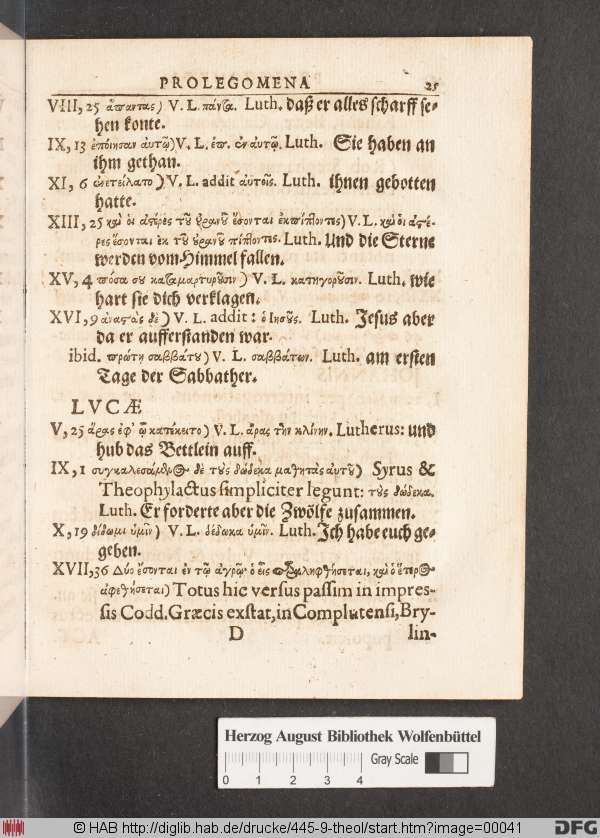 PROLEGOMENA 25
VIII, 25 ἅπαντας) V. L. πάντα. Luth. daß er alles scharff se-
hen konte.
IX, 13 ἐποίησαν αὐτῷ) V. L. ἐπ. ἐν αὐτῷ. Luth. Sie haben an
ihm gethan.
XI, 6 ἐνετείλατο) V. L. addit αὐτοῖς. Luth. ihnen gebotten
hatte.
XIII, 25 καὶ οἱ ἀστέρες τοῦ οὐρανοῦ ἔσονται ἐκπίπτοντες) V. L. καὶ οἱ ἀστέ-
ρες ἔσονται ἐκ τοῦ οὐρανοῦ πίπτοντες. Luth. Und die Sterne
werden vom Himmel fallen.
XV, 4 πόσα σου καταμαρτυροῦσιν) V. L. κατηγοροῦσιν. Luth. wie
hart sie dich verklagen.
XVI, 9 ἀναστὰς δὲ) V. L. addit: ὁ Ἰησοῦς. Luth. Jesus aber
da er aufferstanden war.
ibid. πρώτη σαββάτου) V. L. σαββάτων. Luth. am ersten
Tage der Sabbather.
LVCÆ
V, 25 ἄρας ἐφ' ᾧ κατέκειτο) V. L. ἄρας τὴν κλίνην. Lutherus: und
hub das Bettlein auff.
IX, 1 συγκαλεσάμενος δὲ τοὺς δώδεκα μαθητὰς αὐτοῦ) Syrus &
Theophylactus simpliciter legunt: τοὺς δώδεκα.
Luth. Er forderte aber die Zwölfe zusammen.
X, 19 δίδωμι ὑμῖν) V. L. δέδωκα ὑμῖν. Luth. Ich habe euch ge-
geben.
XVII, 36 Δύο ἔσονται ἐν τῷ ἀγρῷ· ὁ εἷς παραληφθήσεται, καὶ ὁ ἕτερος
ἀφεθήσεται) Totus hic versus passim in impres-
sis Codd. Græcis exstat, in Complutensi, Bry-
D lin-
Herzog August Bibliothek Wolfenbüttel
Gray Scale
0 1 2 3 4
© HAB http://diglib.hab.de/drucke/445-9-theol/start.htm?image=00041
DFG